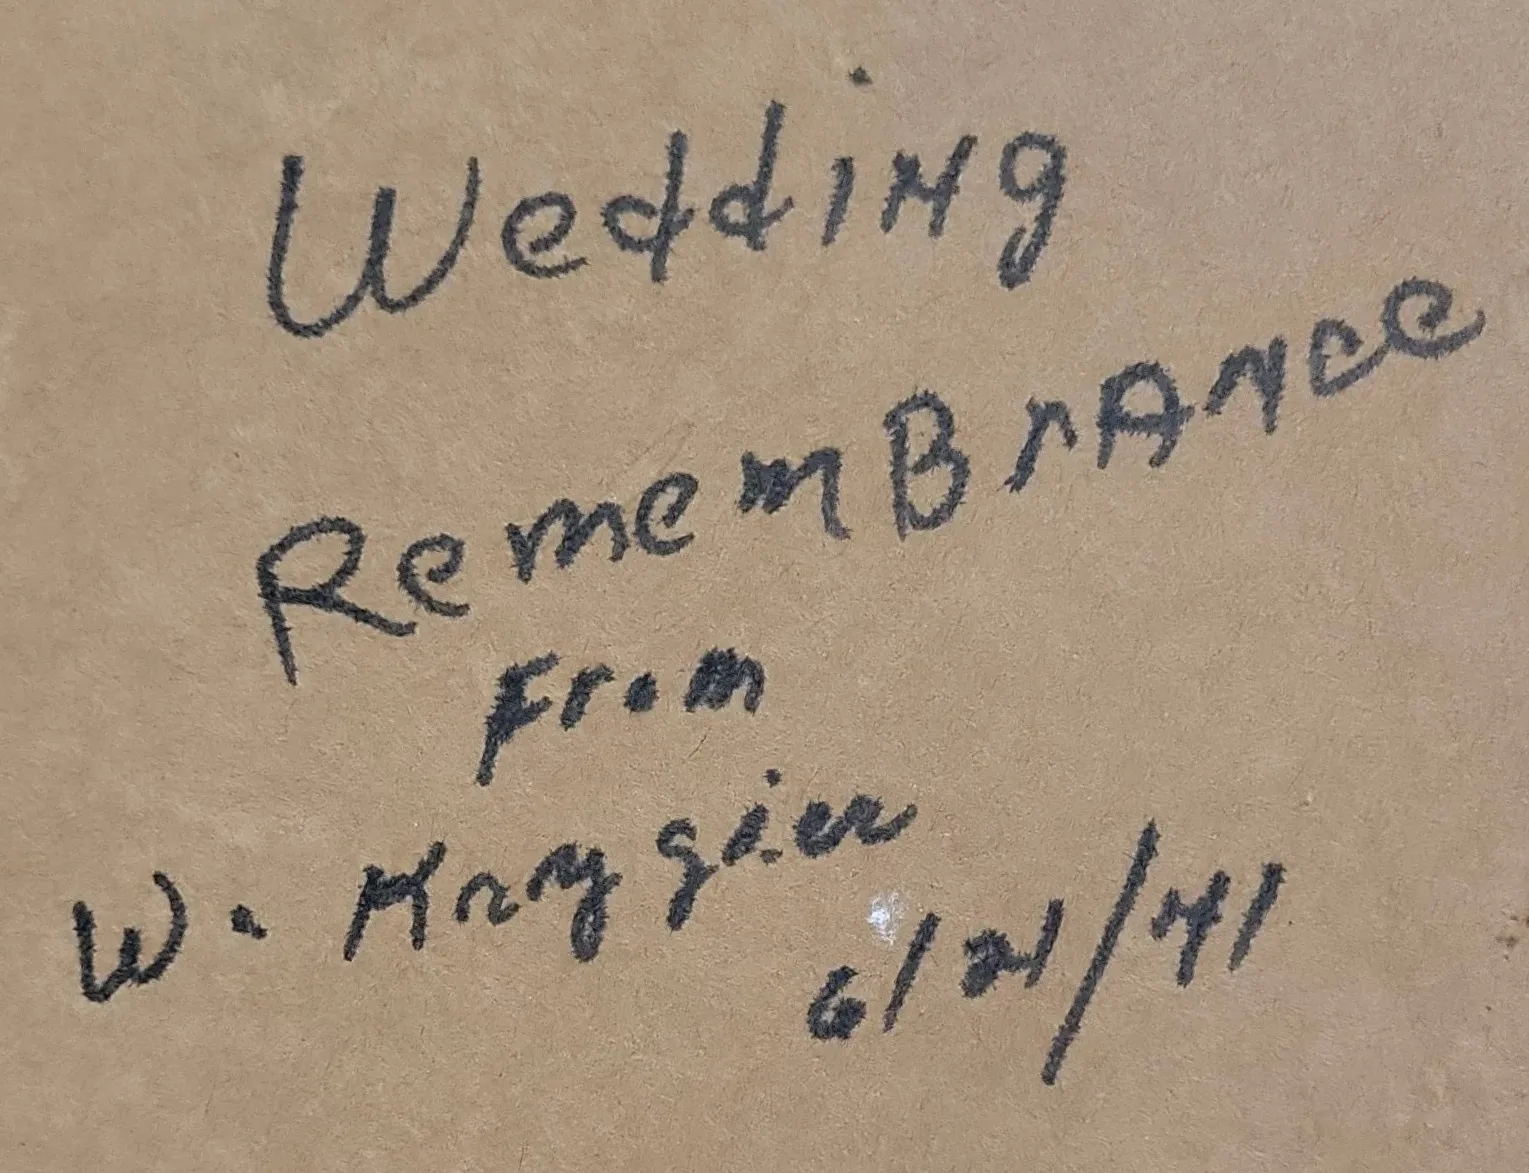 Wedding
RememBrANce
From
W.
6/21/41